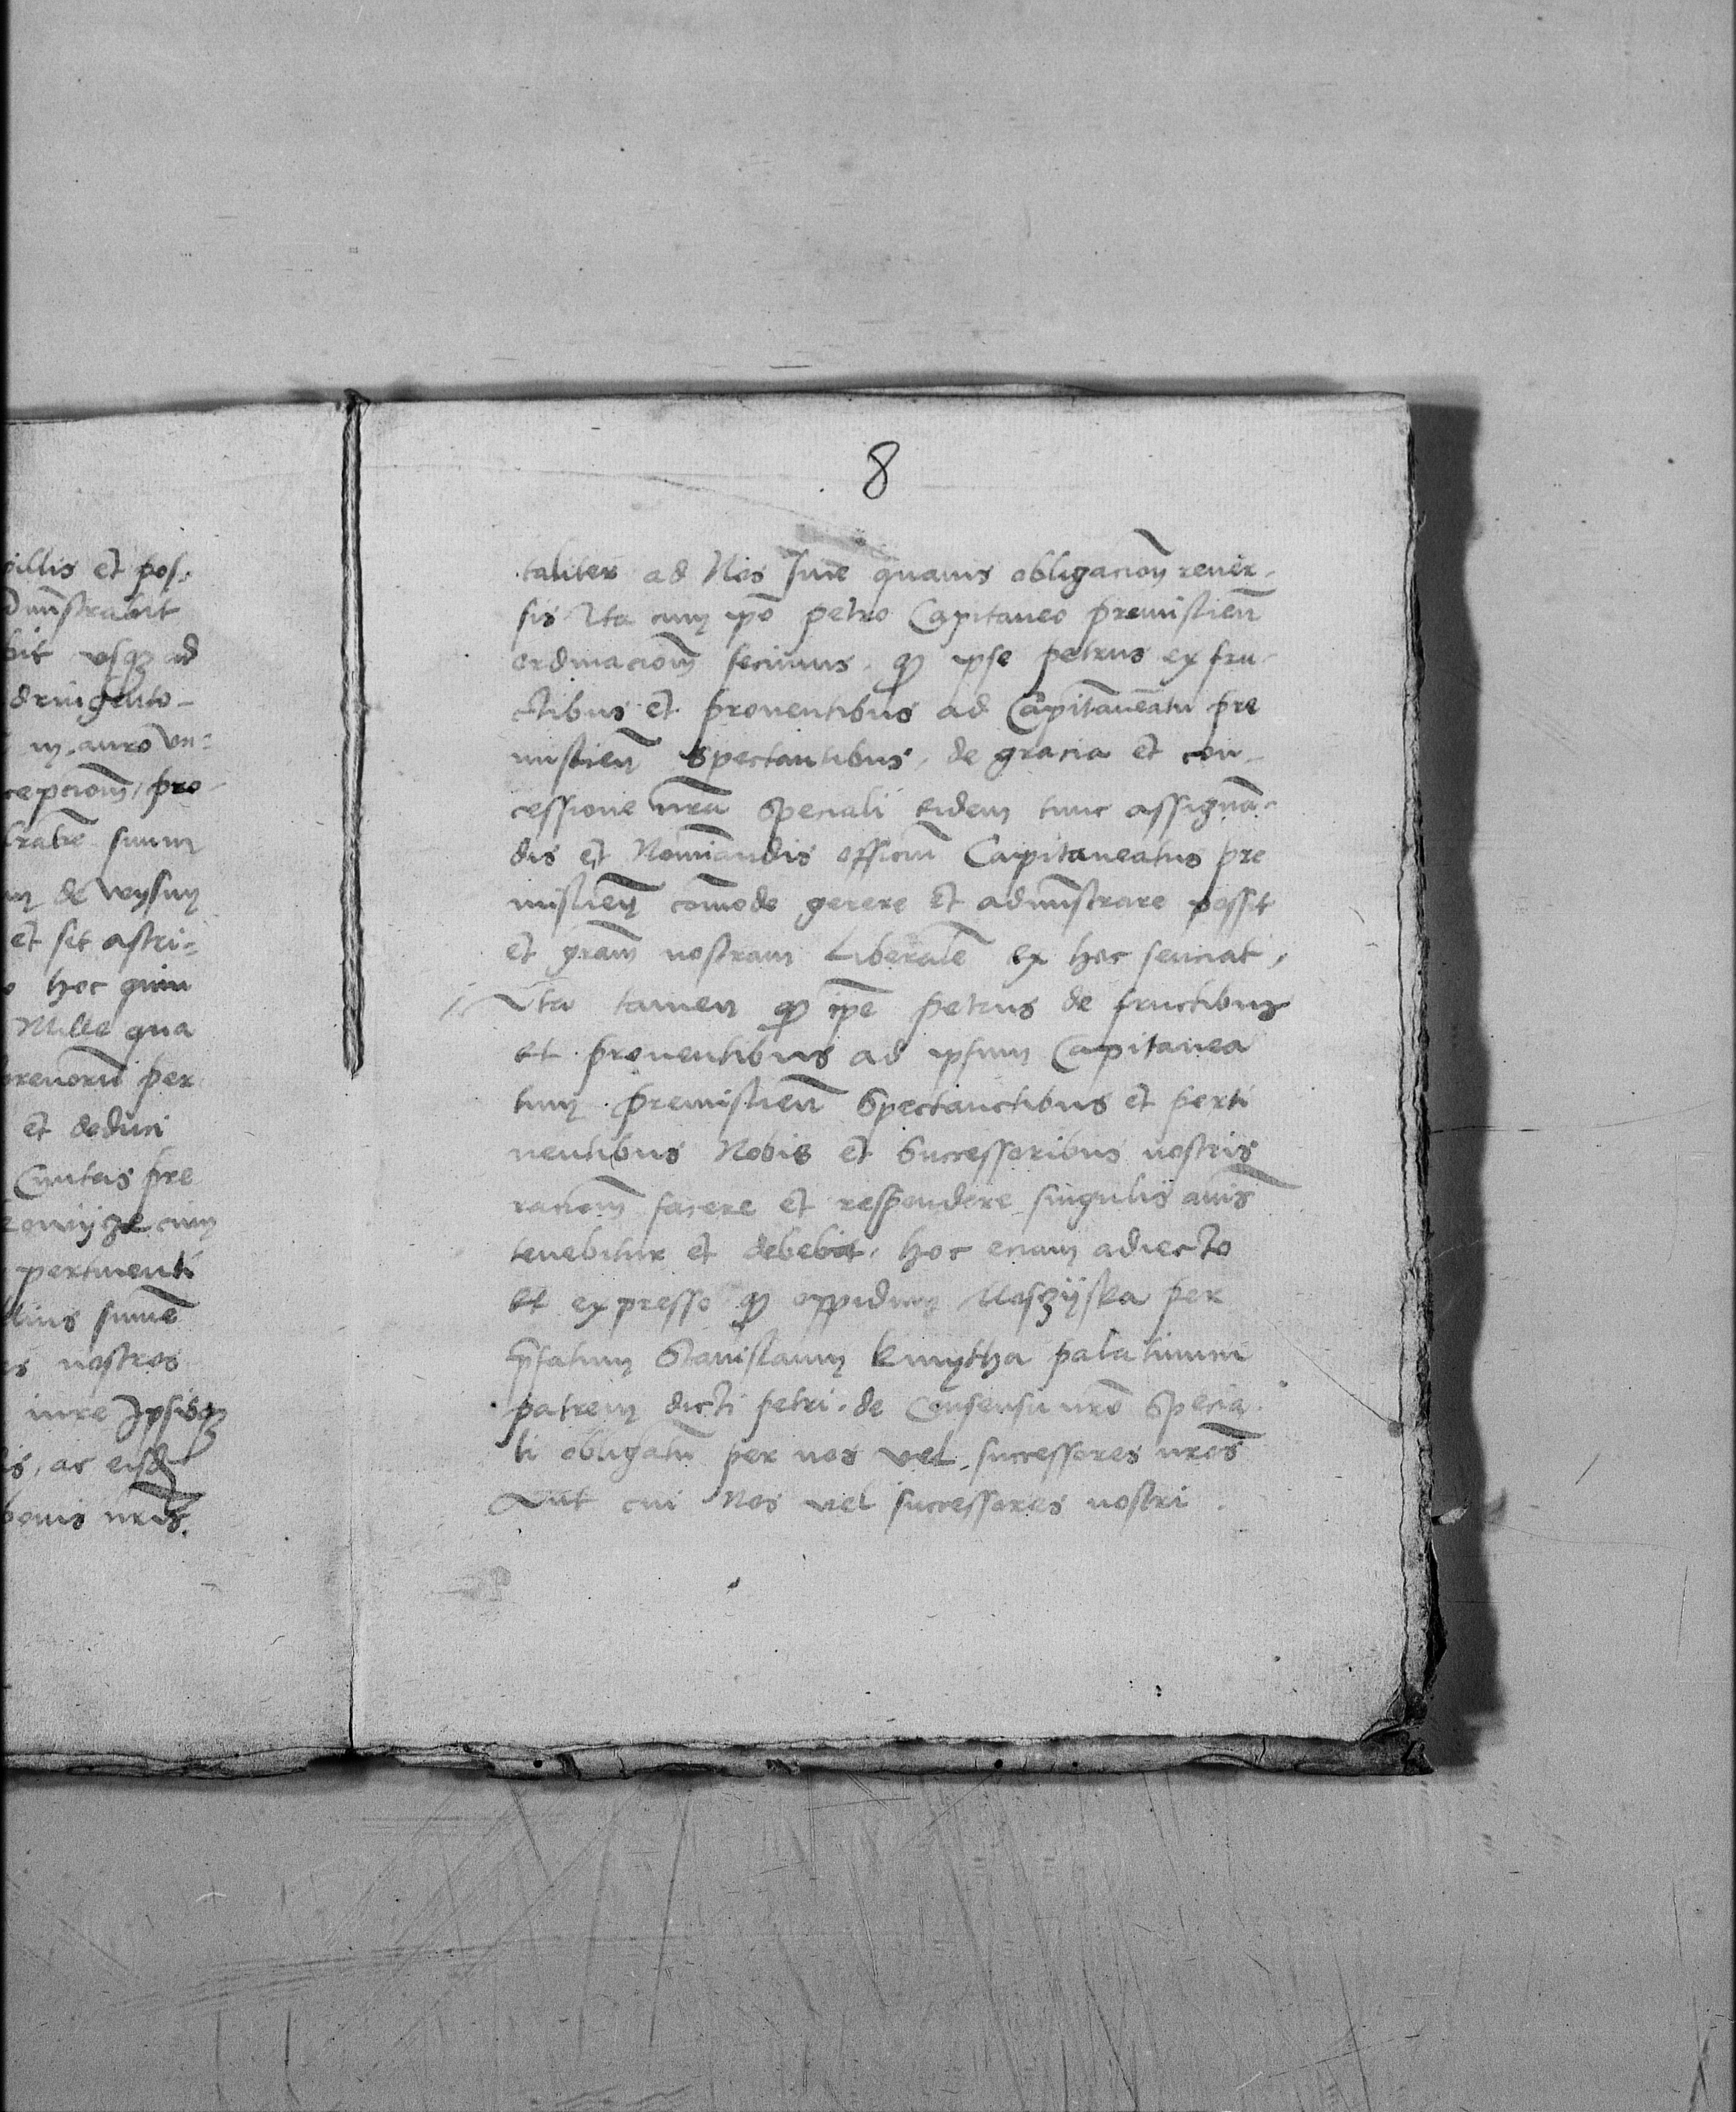 illis et pos-
dm̄strabit
bit usqʒ ad
dringento-
in auro un:
cepcionem, pro-
fratrē suum
de wysnij
et sit astri-
hoc quin
Mille qua
per
et deduci
Civitas pre
cum
pertinenti
sum̄e
nostros
iure Ipsisqʒ
ac eisd
bonis nr̄is.
8
taliter ad Nos sine quavis obligacion̄ rever-
sis Ita cum ip̄o petro Capitaneo premislien̄
ordinacion̄ fecimus, qͩ ipse petrus ex fru-
ctibus et proventibus ad Capitaneatū pre
mislien̄ Spectantibus, de gracia et con-
cessione nr̄a Speciali eidem tunc assignā-
dis et Nominandis officiū Capitaneatus pre
mislien̄ com̄ode gerere et adm̄strare possit
et gram̄ nostram Liberalē ex hoc senciat,
Ita tamen qͩ ip̄e petrus de fructibus
et proventibus ad ipsum Capitanea
tum premislien̄ Spectanctibus et perti
nentibus Nobis et Successoribus nostris
racion̄ facere et respondere singulis an̄is
tenebitur et debebit, hoc eciam adiecto
et expresso qͩ oppidum Mosczijska per
p̄fatum Stanislaum kmytha palatinum
patrem dicti petri, de Consensu nr̄o Specia
li obligatū per nos vel successores nr̄os
Aut cui Nos vel successores nostri.